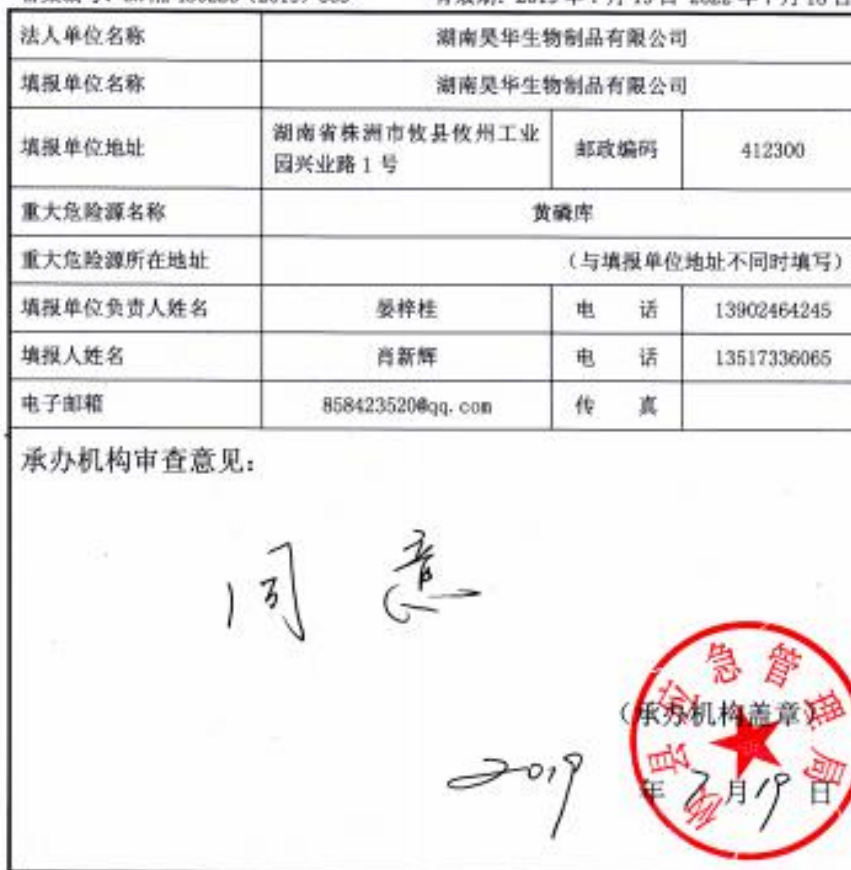 法人单位名称 湖南昊华生物制品有限公司
填报单位名称 湖南昊华生物制品有限公司
填报单位地址 湖南省株洲市攸县攸州工业园兴业路 1 号 邮政编码 412300
重大危险源名称 黄磷库
重大危险源所在地址 （与填报单位地址不同时填写）
填报单位负责人姓名 晏梓桂 电 话 13902464245
填报人姓名 肖新辉 电 话 13517336065
电子邮箱 858423520@qq.com 传 真
承办机构审查意见：
同 意
攸县应急管理局
（承办机构盖章）
2019 年 7 月 19 日